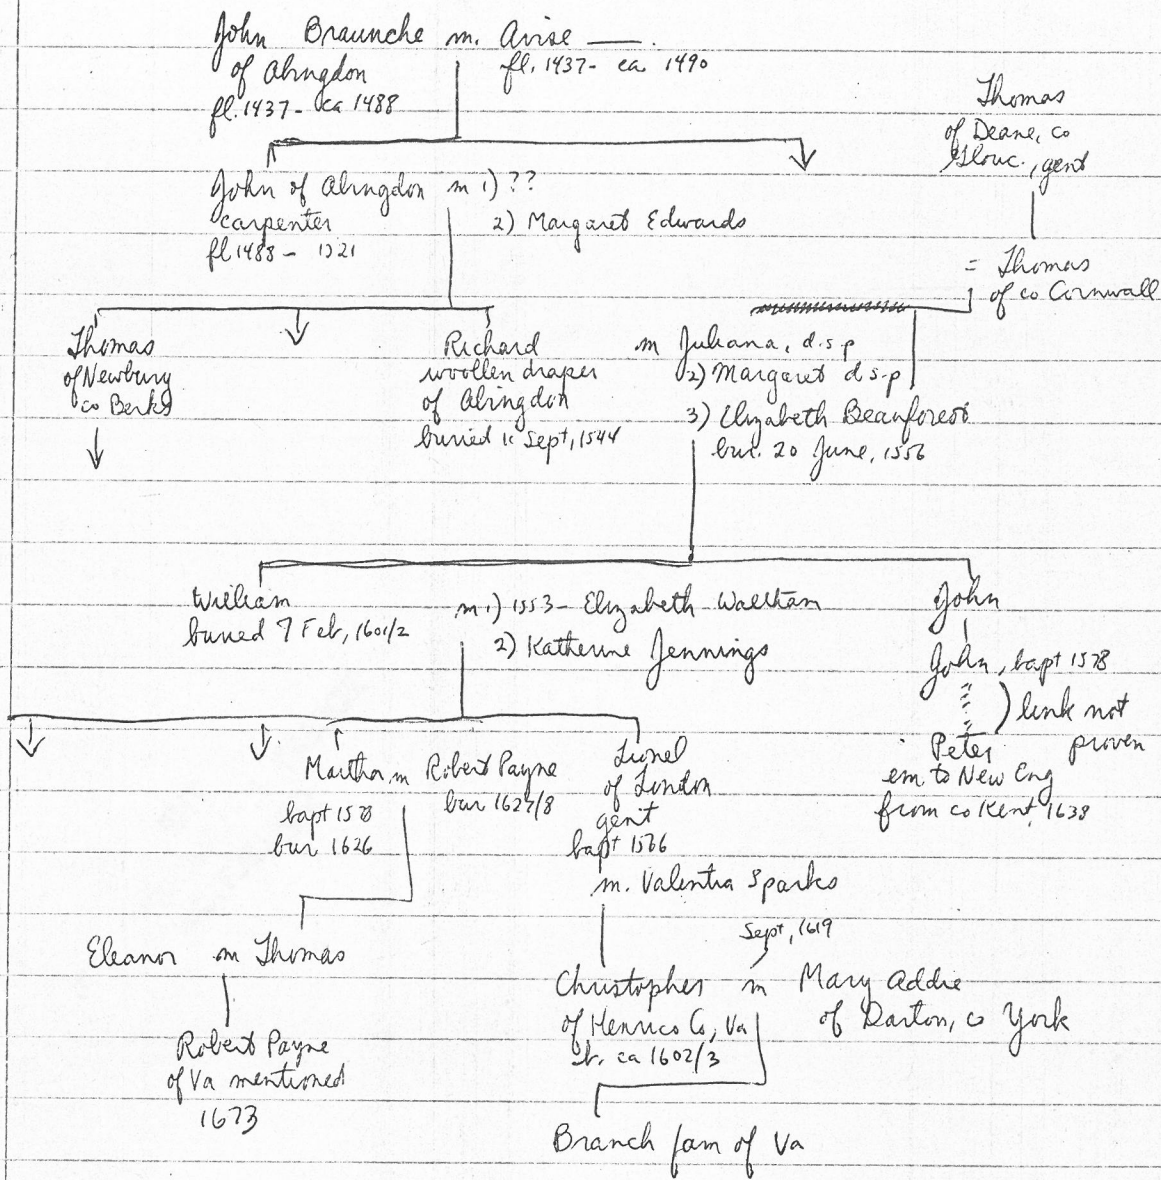 John Braunche m. Avise —.
of Abingdon fl. 1437 - ca 1490
fl. 1437 - ca 1488
Thomas
of Deane, co
Glouc., gent
John of Abingdon m 1) ??
carpenter 2) Margaret Edwards
fl 1488 - 1521
= Thomas
of co Cornwall
Thomas
of Newbury
co Berks
Richard
woollen draper
of Abingdon
buried Sept, 1544
m Juliana, d.s.p
2) Margaret d s-p
3) Elizabeth Beauforest
bur. 20 June, 1556
William
buried 7 Feb, 1601/2
m 1) 1553 - Elizabeth Waltham
2) Katherine Jennings
John
John, bapt 1578
) link not
proven
Peter
em to New Eng
from co Kent, 1638
Martha m Robert Payne
bapt 1578 bur 1627/8
bur 1626
Lionel
of London
gent
bapt 1566
m. Valentia Sparks
Sept, 1619
Eleanor m Thomas
Christopher m Mary Addie
of Henrico Co, Va of Darton, co York
b. ca 1602/3
Robert Payne
of Va mentioned
1673
Branch fam of Va